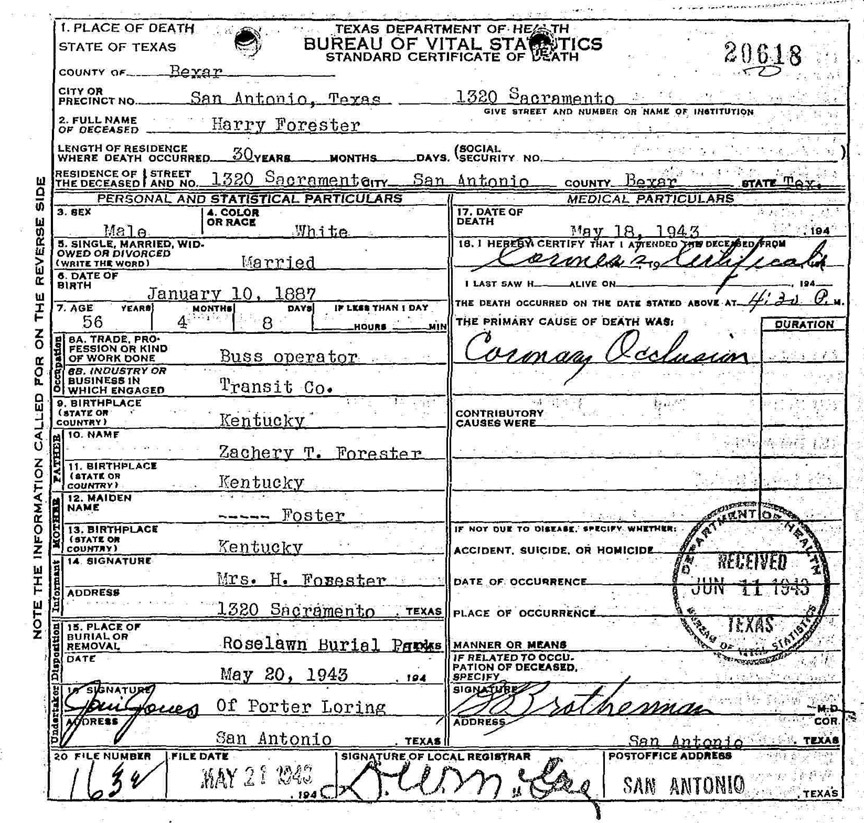 1. PLACE OF DEATH
STATE OF TEXAS
TEXAS DEPARTMENT OF HEALTH
BUREAU OF VITAL STATISTICS
STANDARD CERTIFICATE OF DEATH
20618
COUNTY OF Bexar
CITY OR PRECINCT NO. San Antonio, Texas 1320 Sacramento
GIVE STREET AND NUMBER OR NAME OF INSTITUTION
2. FULL NAME OF DECEASED Harry Forester
LENGTH OF RESIDENCE WHERE DEATH OCCURRED 30 YEARS MONTHS DAYS. (SOCIAL SECURITY NO. )
RESIDENCE OF THE DECEASED STREET AND NO. 1320 Sacramento CITY San Antonio COUNTY Bexar STATE Tex.
PERSONAL AND STATISTICAL PARTICULARS
3. SEX Male
4. COLOR OR RACE White
5. SINGLE, MARRIED, WIDOWED OR DIVORCED (WRITE THE WORD) Married
6. DATE OF BIRTH January 10, 1887
7. AGE YEARS MONTHS DAYS IF LESS THAN 1 DAY
56 4 8 HOURS MIN
Occupation
8A. TRADE, PROFESSION OR KIND OF WORK DONE Buss operator
8B. INDUSTRY OR BUSINESS IN WHICH ENGAGED Transit Co.
9. BIRTHPLACE (STATE OR COUNTRY) Kentucky
FATHER
10. NAME Zachery T. Forester
11. BIRTHPLACE (STATE OR COUNTRY) Kentucky
MOTHER
12. MAIDEN NAME ----- Foster
13. BIRTHPLACE (STATE OR COUNTRY) Kentucky
Informant
14. SIGNATURE Mrs. H. Forester
ADDRESS 1320 Sacramento . TEXAS
Disposition
15. PLACE OF BURIAL OR REMOVAL Roselawn Burial
DATE May 20, 1943 . 194
Undertaker
SIGNATURE Jones Of Porter Loring
ADDRESS San Antonio . TEXAS
MEDICAL PARTICULARS
17. DATE OF DEATH May 18, 1943 . 194
18. I HEREBY CERTIFY THAT I ATTENDED THE DECEASED FROM
Coroner's Certificate
I LAST SAW H ALIVE ON , 194
THE DEATH OCCURRED ON THE DATE STATED ABOVE AT 4:30 P. M.
THE PRIMARY CAUSE OF DEATH WAS: DURATION
Coronary Occlusion
CONTRIBUTORY CAUSES WERE
IF NOT DUE TO DISEASE, SPECIFY WHETHER:
ACCIDENT, SUICIDE, OR HOMICIDE
DATE OF OCCURRENCE
PLACE OF OCCURRENCE
MANNER OR MEANS
IF RELATED TO OCCUPATION OF DECEASED, SPECIFY
DEPARTMENT OF HEALTH
RECEIVED
JUN 11 1943
TEXAS
BUREAU OF VITAL STATISTICS
SIGNATURE M.D.
ADDRESS San Antonio COR. TEXAS
20 FILE NUMBER FILE DATE SIGNATURE OF LOCAL REGISTRAR POSTOFFICE ADDRESS
MAY 21 1943 . 194 SAN ANTONIO . TEXAS
NOTE THE INFORMATION CALLED FOR ON THE REVERSE SIDE